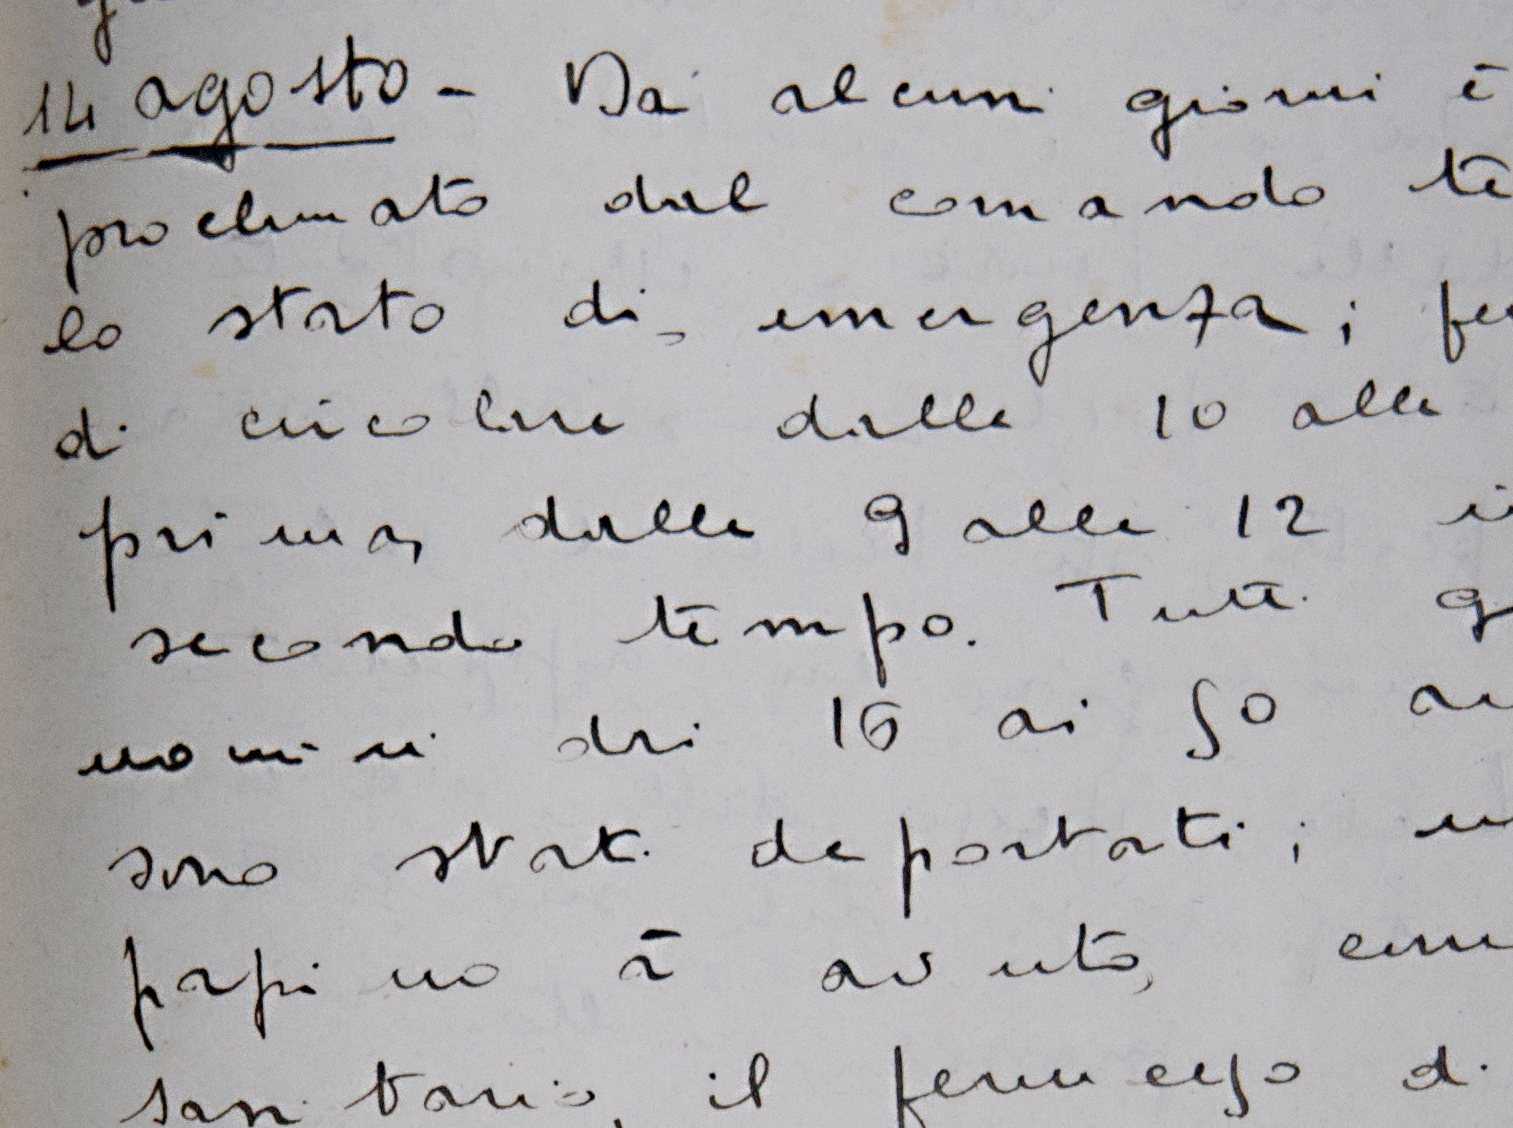 14 agosto - Da alcuni giorni è
proclamato dal comando te
lo stato di emergenza; per
di circolare dalle 10 alle
prima, dalle 9 alle 12 in
secondo tempo. Tutti g
uomini dai 16 ai 50 an
sono stati deportati; 
papino à avuto, come
sanitario, il permesso di